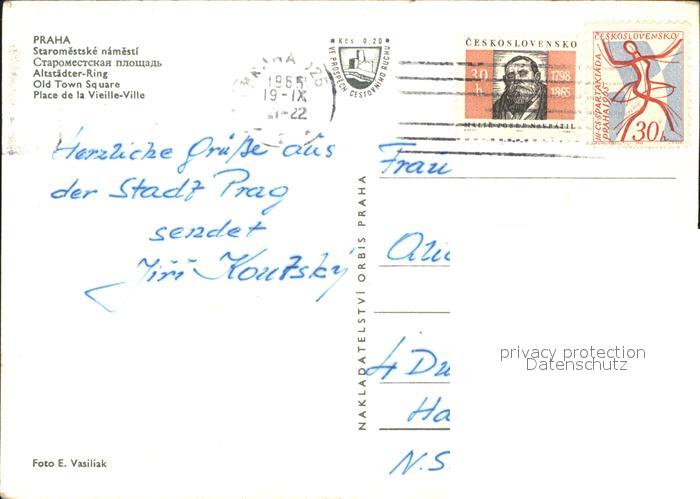 PRAHA
Staroměstské náměstí
Староместская площадь
Altstädter-Ring
Old Town Square
Place de la Vieille-Ville
PRAHA 125
1965
19-IX
21-22
Kčs 0,20
VE PROSPĚCH CESTOVNÍHO RUCHU
ČESKOSLOVENSKO
30 h
1798
1865
MALÍŘ JOSEF NAVRÁTIL
ČESKOSLOVENSKO
III. CS. SPARTAKIÁDA
PRAHA 1965
30h
Herzliche Grüße aus
der Stadt Prag
sendet
Jiří Kouřský
NAKLADATELSTVÍ ORBIS PRAHA
Frau
4 Du
Ha
N.S.
privacy protection
Datenschutz
Foto E. Vasiliak